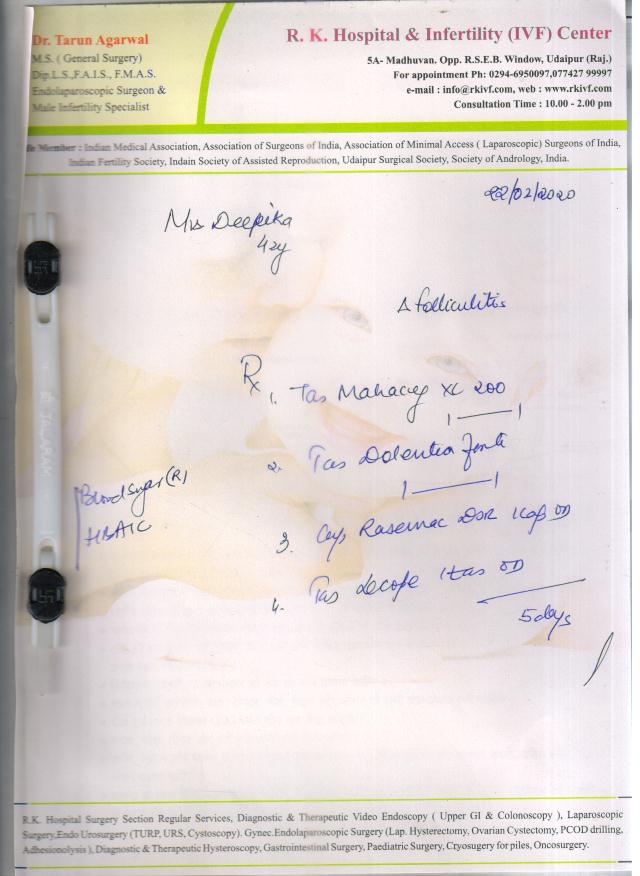 Dr. Tarun Agarwal
M.S. ( General Surgery)
Dip.L.S.,F.A.I.S., F.M.A.S.
Endolaparoscopic Surgeon &
Male Infertility Specialist
R. K. Hospital & Infertility (IVF) Center
5A- Madhuvan. Opp. R.S.E.B. Window, Udaipur (Raj.)
For appointment Ph: 0294-6950097,077427 99997
e-mail : info@rkivf.com, web : www.rkivf.com
Consultation Time : 10.00 - 2.00 pm
Member : Indian Medical Association, Association of Surgeons of India, Association of Minimal Access ( Laparoscopic) Surgeons of India,
Indian Fertility Society, Indain Society of Assisted Reproduction, Udaipur Surgical Society, Society of Andrology, India.
22/02/2020
Mrs Deepika
42y
Δ folliculitis
Rx
1. Tab Mahacef XL 200
1 — 1
2. Tab forte
1 — 1
Blood Sugar (R)
HBA1C
3. Cap DSR 1cap OD
4. Tab 1tab OD
5 days
R.K. Hospital Surgery Section Regular Services, Diagnostic & Therapeutic Video Endoscopy ( Upper GI & Colonoscopy ), Laparoscopic
Surgery,Endo Urosurgery (TURP, URS, Cystoscopy). Gynec.Endolaparoscopic Surgery (Lap. Hysterectomy, Ovarian Cystectomy, PCOD drilling,
Adhesionolysis ), Diagnostic & Therapeutic Hysteroscopy, Gastrointestinal Surgery, Paediatric Surgery, Cryosugery for piles, Oncosurgery.